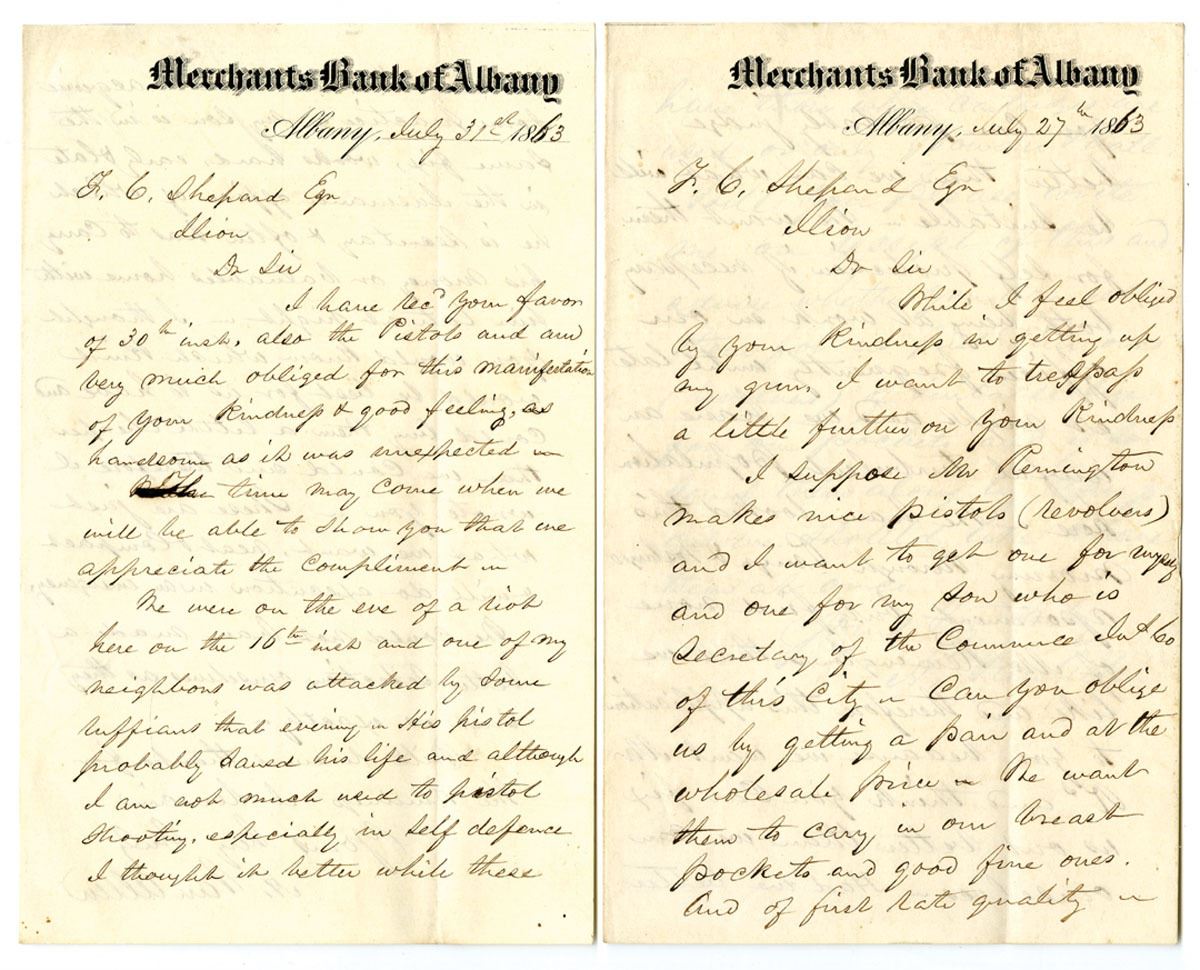 Merchants Bank of Albany
Albany, July 31st 1863
F. C. Shepard Eqr
Ilion
Dr Sir
I have recd your favor
of 30th inst, also the Pistols and am
very much obliged for this manifestation
of your Kindness & good feeling, as
handsome as it was unexpected
time may come when we
will be able to show you that we
appreciate the compliment
We were on the eve of a riot
here on the 16th inst and one of my
neighbors was attacked by some
ruffians that evening His pistol
probably saved his life and although
I am not much used to pistol
shooting, especially in self defence
I thought it better while these
Merchants Bank of Albany
Albany, July 27th 1863
F. C. Shepard Eqr
Ilion
Dr Sir
While I feel obliged
by your Kindness in getting up
my guns, I want to tresspass
a little further on your Kindness
I suppose Mr Remington
makes nice pistols (revolvers)
and I want to get one for myself
and one for my son who is
Secretary of the Commerce Ins Co
of this City Can you oblige
us by getting a pair and at the
wholesale price We want
them to carry in our breast
pockets and good fine ones.
And of first rate quality